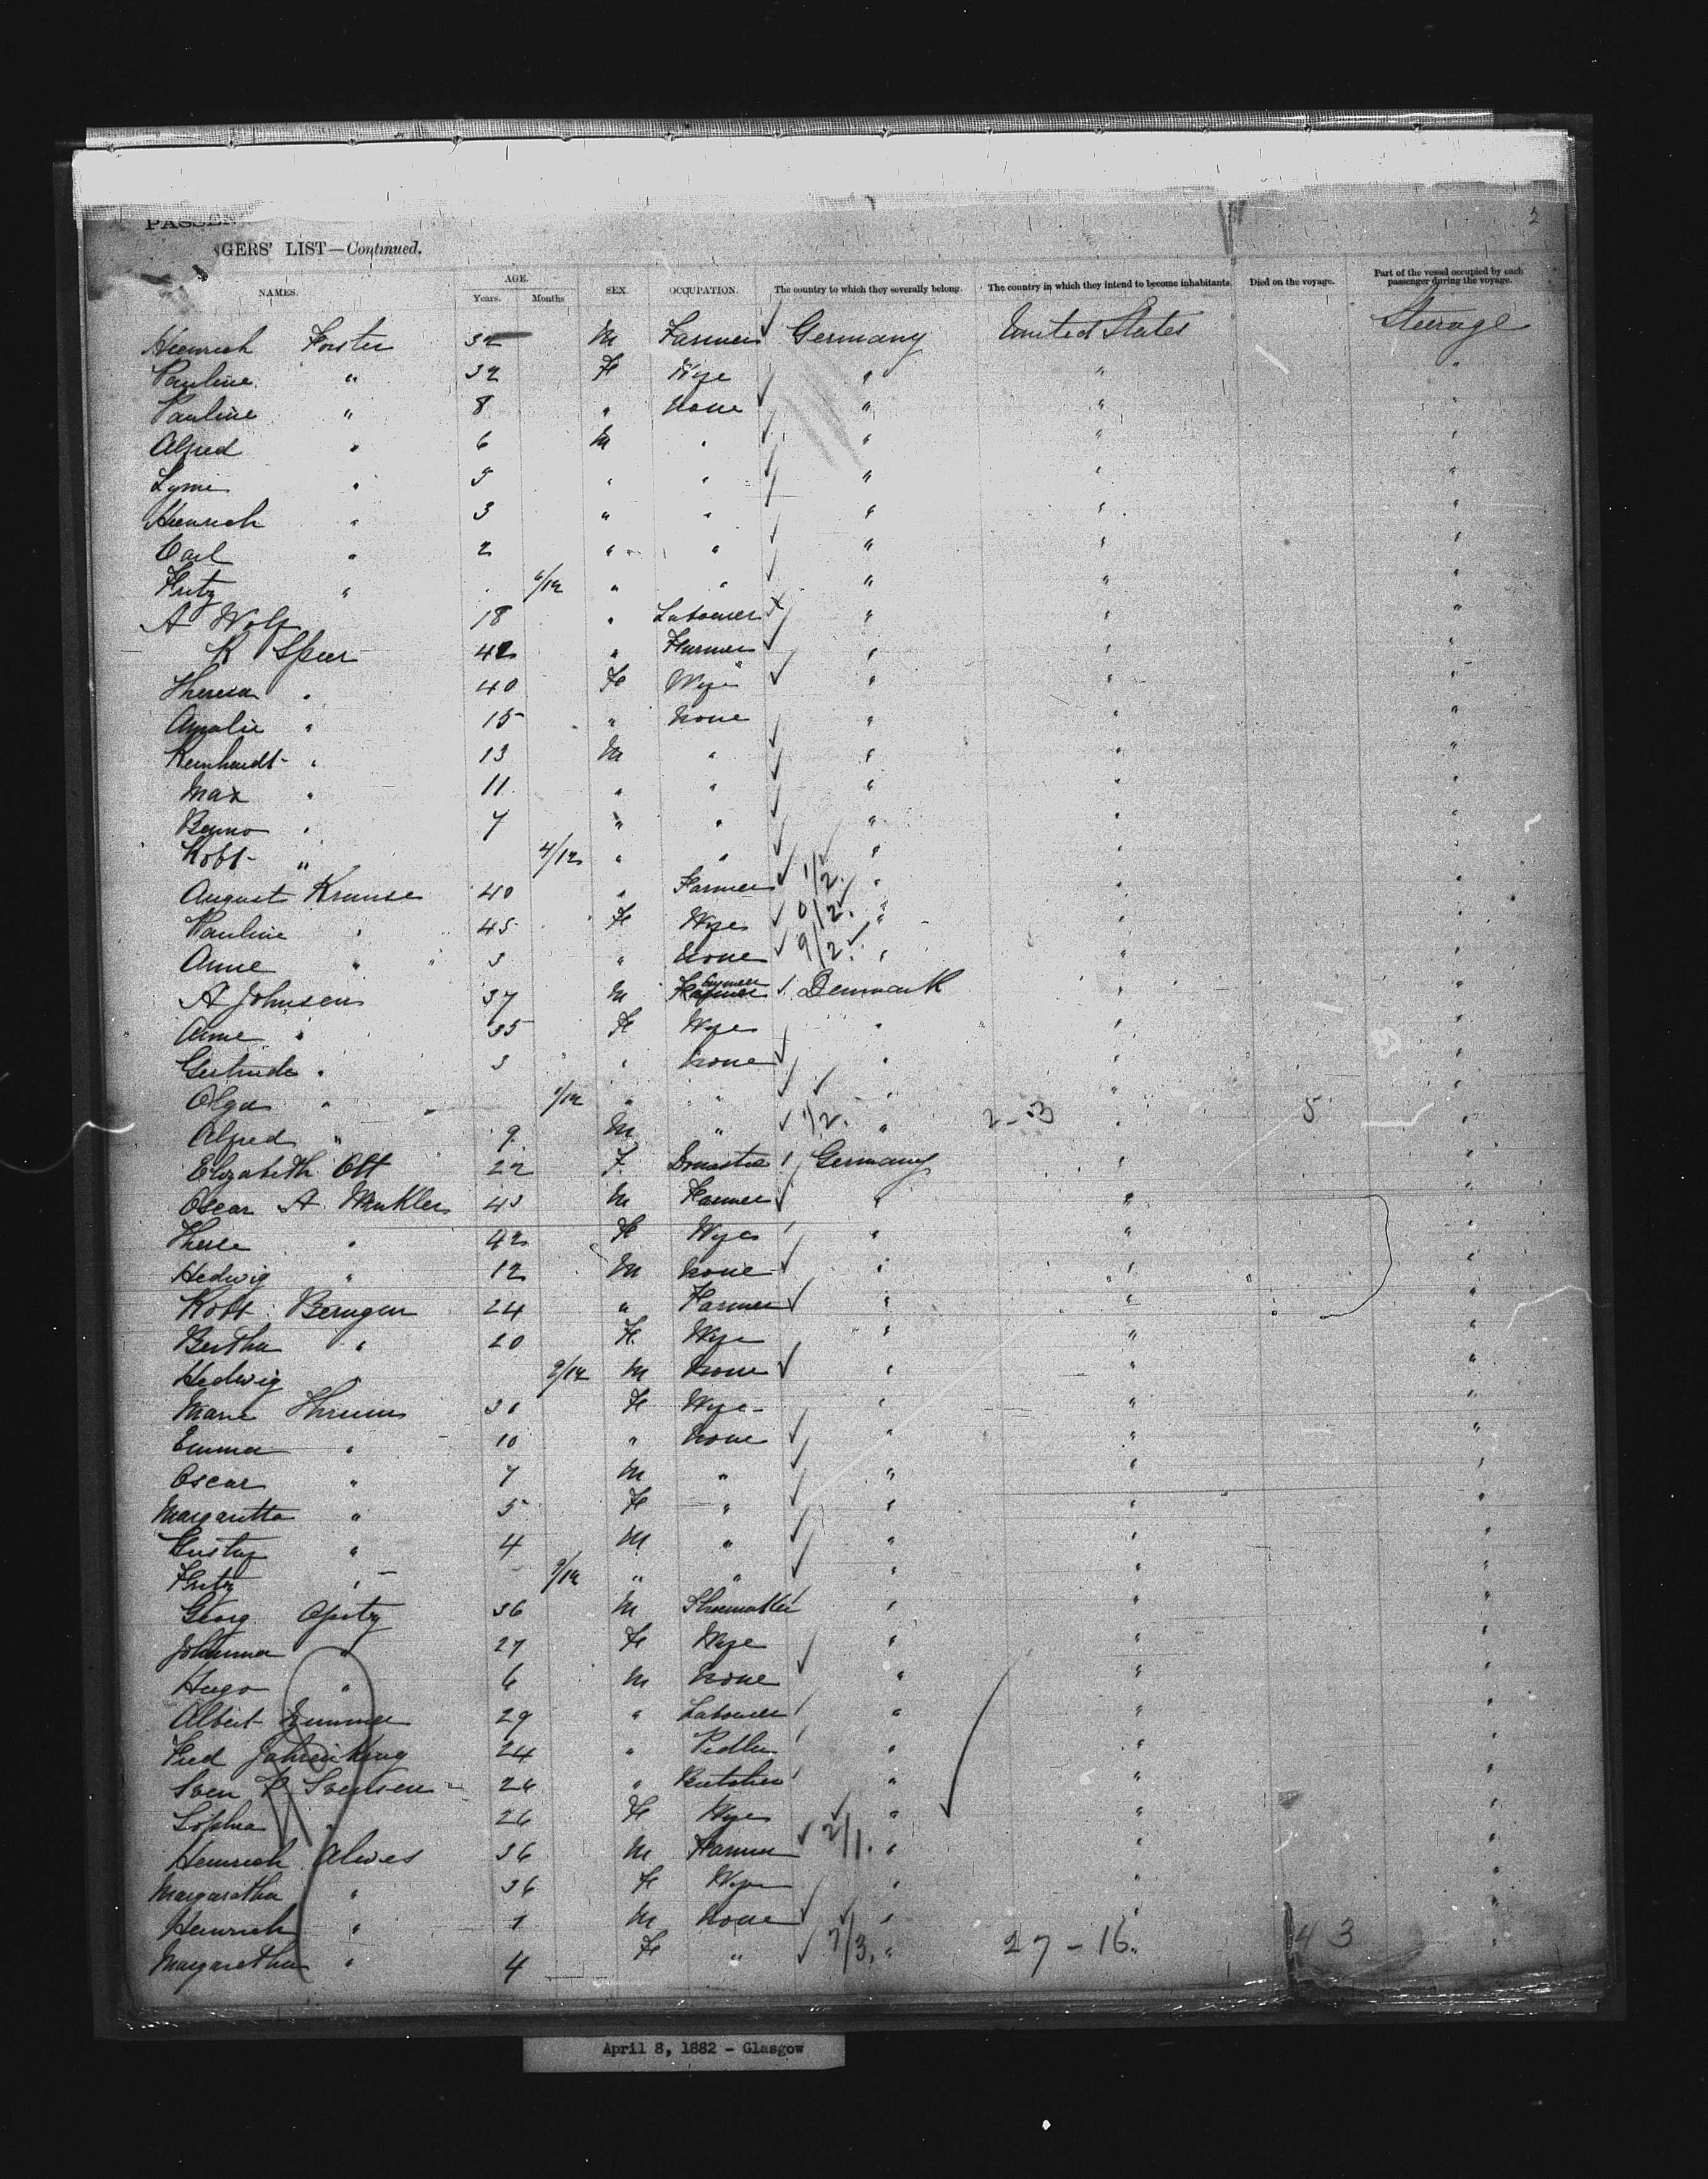 PASSEN
GERS' LIST—Continued.
2
NAMES. AGE. Years. Months SEX. OCCUPATION. The country to which they severally belong. The country in which they intend to become inhabitants. Died on the voyage. Part of the vessel occupied by each passenger during the voyage.
Heinrich Forster 32 M Farmer Germany United States Steerage
Pauline " 32 F Wife " " "
Pauline " 8 " None " " "
Alfred " 6 M " " " "
" 5 " " " " "
Heinrich " 3 " " " " "
Carl " 2 " " " " "
Fritz " 6/12 " " " " "
A Wolf 18 " Labourer " " "
K Speer 42 " Farmer " " "
Theresa " 40 F Wife " " "
Amalie " 15 " None " " "
Reinhardt " 13 M " " " "
Max " 11 " " " " "
Benno " 7 " " " " "
Robt " 4/12 " " " " "
August Krause 40 " Farmer 1/2. " " "
Pauline " 45 F Wife 0/2. " " "
Anne " 3 " None 9/2. " " "
A Johnsen 37 M Farmer Denmark " "
Anne " 35 F Wife " " "
Gertrude " 3 " None " " "
Olga " 1/12 " " " " "
Alfred " 9 M " 1/2. " 2-3 " 5 "
Elizabeth Ott 22 F Domestic Germany " "
Oscar A Winkler 43 M Farmer " " "
Therse " 42 F Wife " " "
Hedwig " 12 M None " " "
Robt Berugen 24 " Farmer " " "
Bertha " 20 F Wife " " "
Hedwig " 9/12 M None " " "
Marie Thrum 31 F Wife " " "
Emma " 10 " None " " "
Oscar " 7 M " " " "
Margaretta " 5 F " " " "
Gustav " 4 M " " " "
Fritz " 9/12 " " " " "
Georg Opitz 36 M Shoemaker " " "
Johanna " 27 F Wife " " "
Hugo " 6 M None " " "
Albert 29 " Labourer " " "
Fred 24 " Pedler " " "
Sven P Svensen 26 " Butcher " " "
Sophia " 26 F Wife " " "
Heinrich Alwes 36 M Farmer 2/1. " " "
Margaretha " 36 F Wife " " "
Heinrich " 7 M None " " "
Margaretha " 4 F " 7/3. " 27-16 " 43 "
April 8, 1882 - Glasgow